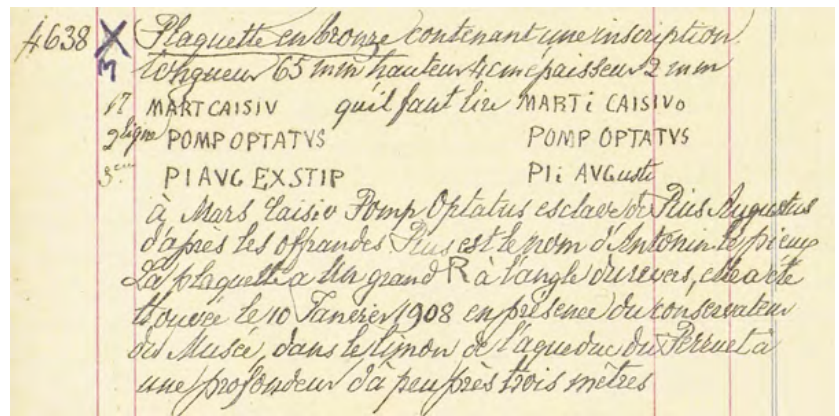 4638 X Plaquette en bronze contenant une inscription.
M longueur 65 mm hauteur 4 cm epaisseur 2 mm
1r MARTCAISIV qu'il faut lire MARTi CAISIVo
2 ligne POMP OPTATVS POMP OPTATVS
3em PIAVG EXSTIP PIi AVGusti
à Mars Caisiv Pomp Optatus esclave de Pius Augustus
d'après les offrandes Pius est le nom d'Antonin le pieux
La plaquette a un grand R à l'angle du revers, elle a été
trouvée le 10 Janvier 1908 en présence du conservateur
du Musée, dans le limon de l'aqueduc du Perruet à
une profondeur d'à peu près trois mètres